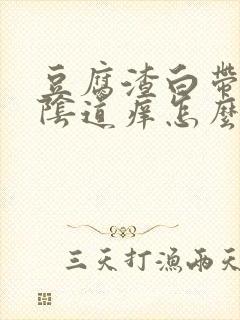 豆腐渣白帶
陰道癢怎麼
三天打漁兩天